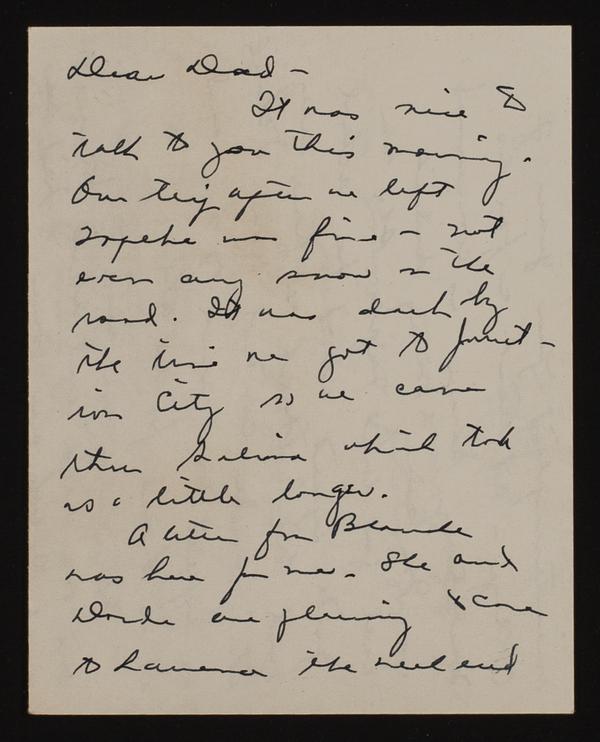 Dear Dad -
It was nice to
talk to you this morning.
Our trip after we left
Topeka was fine - not
even any snow on the
road. It was dark by
the time we got to Junct-
ion City so we came
thru Salina which took
us a little longer.
A letter from Blanche
was here for me. She and
are planning to come
to Lawrence the week end